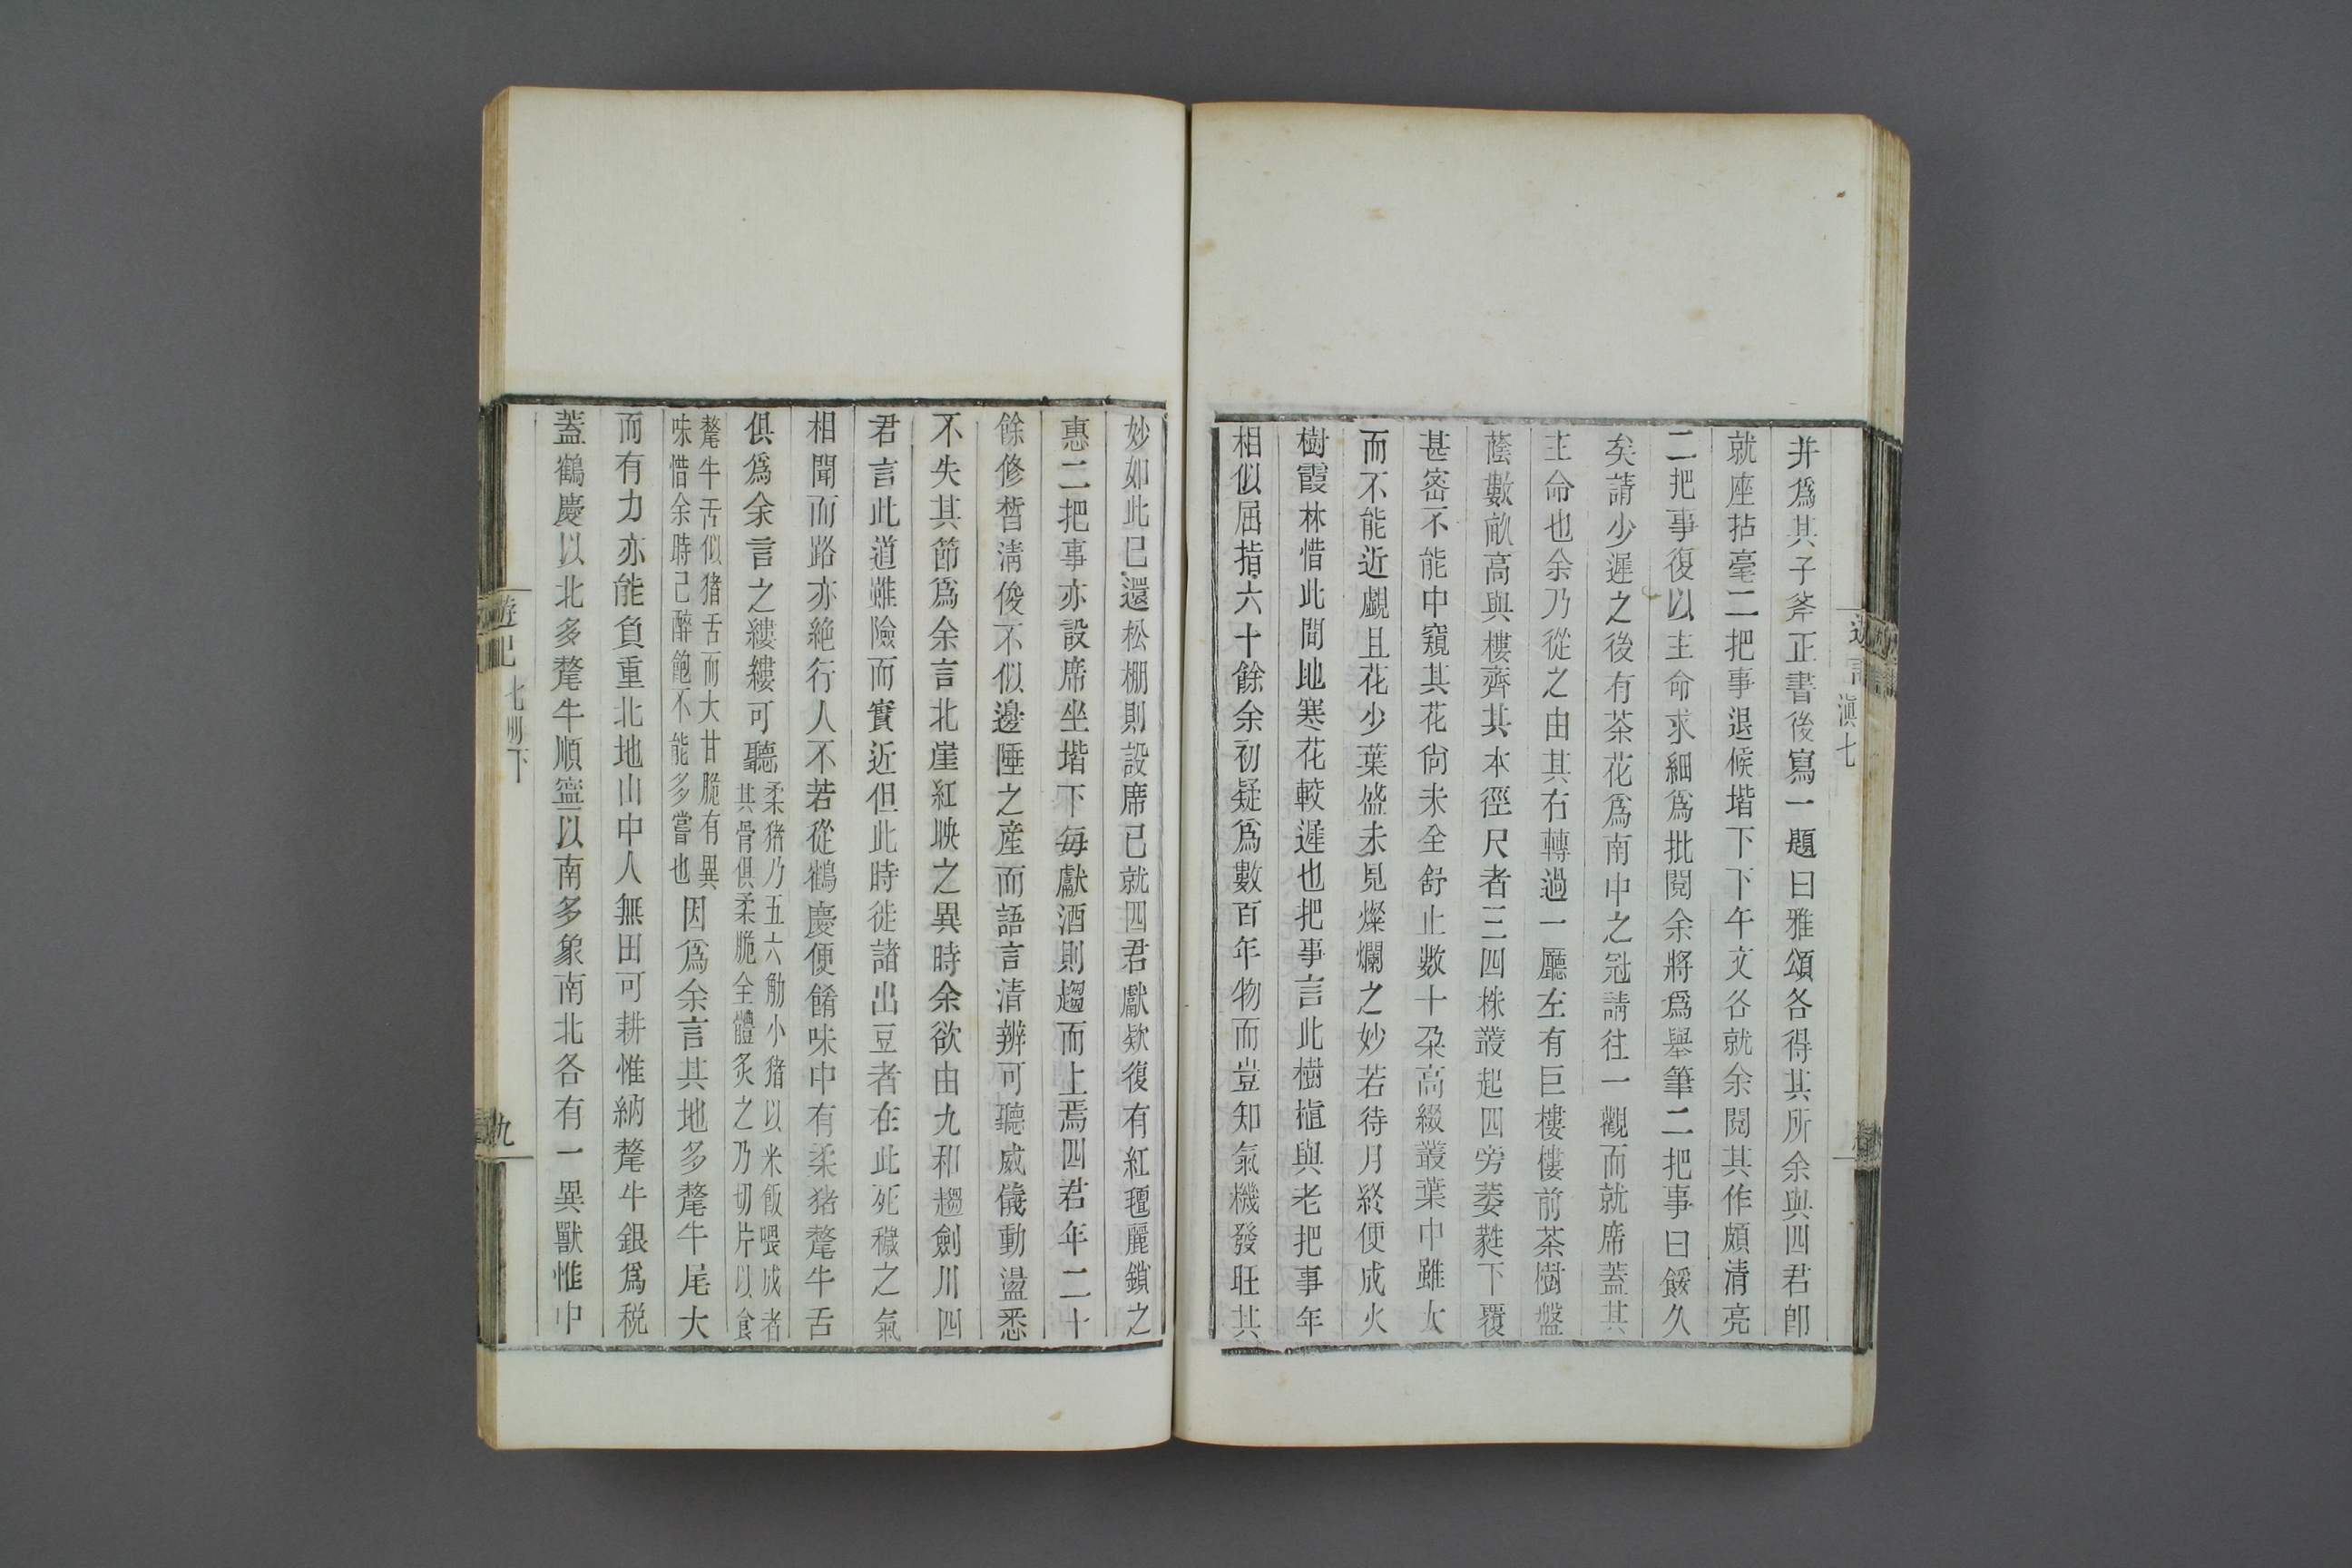 并爲其子斧正書後寫一題曰雅頌各得其所余與四君卽
就座拈毫二把事退候堦下下午文各就余閱其作頗清亮
二把事復以主命求細爲批閱余將爲舉筆二把事曰餒久
矣請少遲之後有茶花爲南中之冠請往一觀而就席蓋其
主命也余乃從之由其右轉過一廳左有巨樓樓前茶樹盤
蔭數畝高與樓齊其本徑尺者三四株叢起四旁萎蕤下覆
甚密不能中窺其花尙未全舒止數十朶高綴叢葉中雖大
而不能近覷且花少葉盛未見燦爛之妙若待月終便成火
樹霞林惜此間地寒花較遲也把事言此樹植與老把事年
相似屈指六十餘余初疑爲數百年物而豈知氣機發旺其
滇七
妙如此已還松棚則設席已就四君獻欵復有紅氊麗鎖之
惠二把事亦設席坐堦下每獻酒則趨而上焉四君年二十
餘修晳淸俊不似邊陲之産而語言清辨可聽威儀動盪悉
不失其節爲余言北崖紅映之異時余欲由九和趨劍川四
君言此道雖險而實近但此時徙諸出豆者在此死穢之氣
相聞而路亦絶行人不若從鶴慶便餚味中有柔猪氂牛舌
俱爲余言之縷縷可聽柔猪乃五六觔小猪以米飯喂成者
其骨俱柔脆全體炙之乃切片以食
氂牛舌似猪舌而大甘脆有異
味惜余時已醉飽不能多嘗也因爲余言其地多氂牛尾大
而有力亦能負重北地山中人無田可耕惟納氂牛銀爲税
蓋鶴慶以北多氂牛順寧以南多象南北各有一異獸惟中
遊記
九